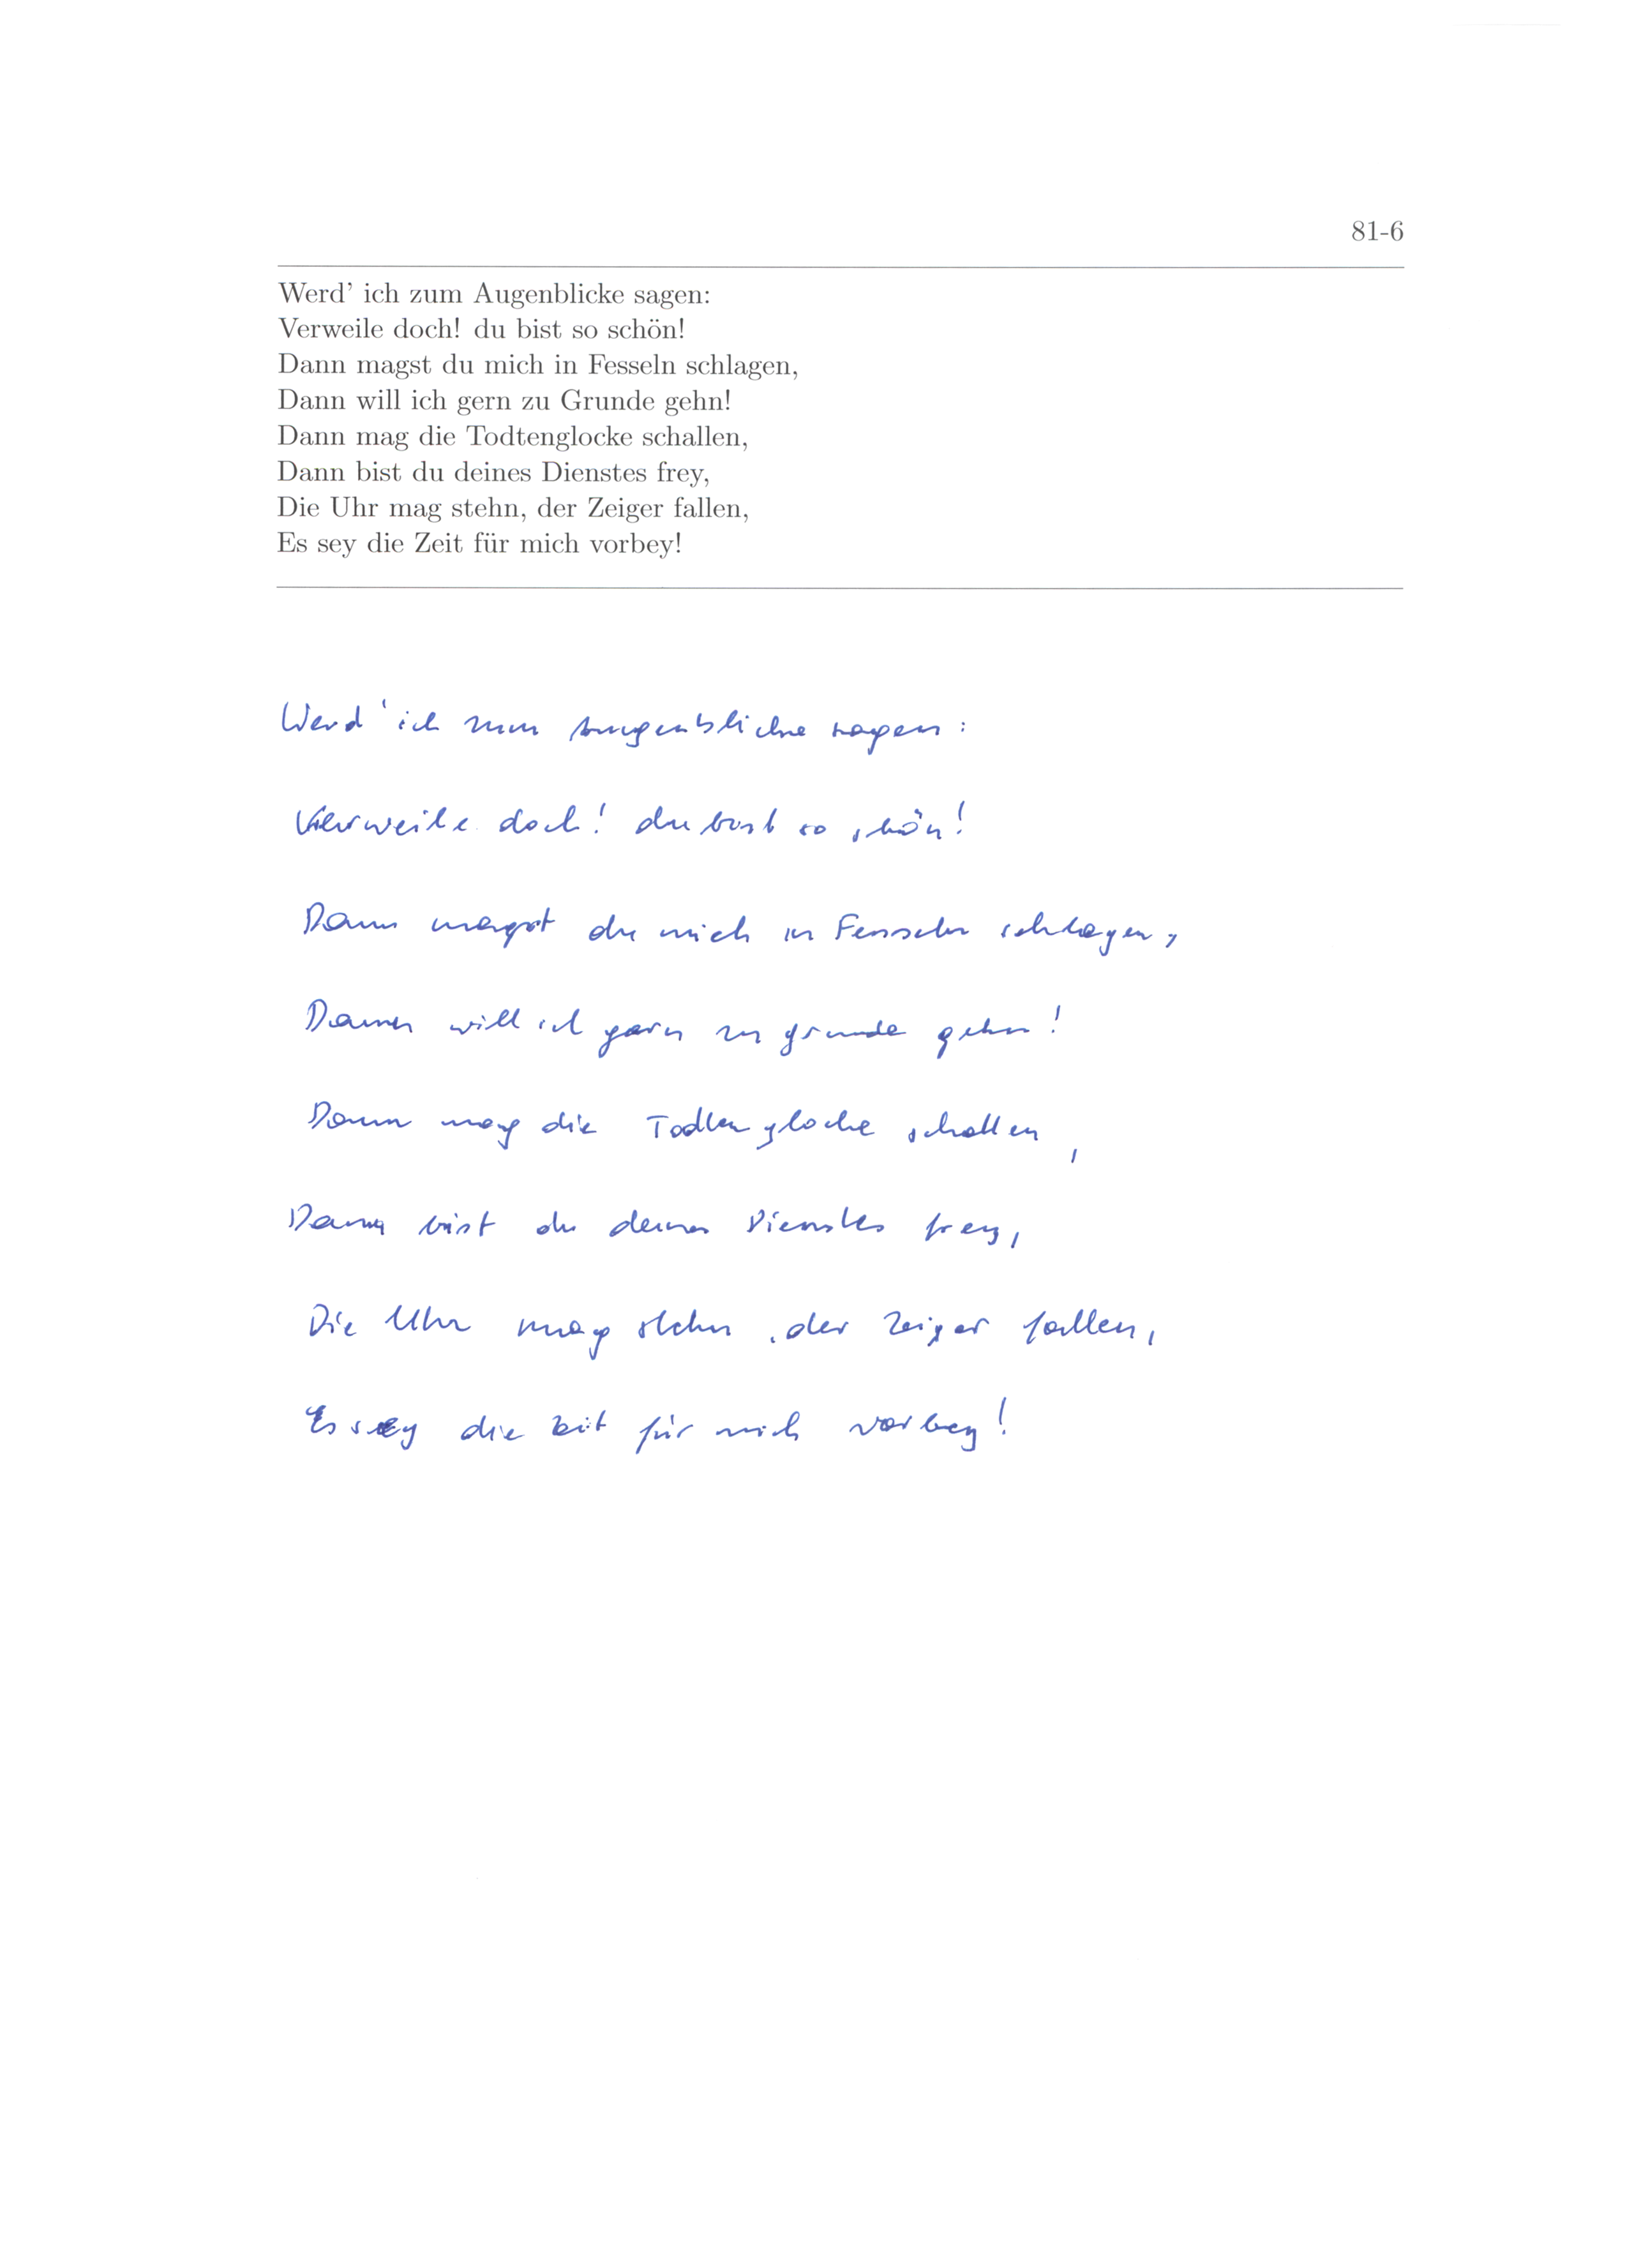 81-6
Werd' ich zum Augenblicke sagen:
Verweile doch! du bist so schön!
Dann magst du mich in Fesseln schlagen,
Dann will ich gern zu Grunde gehn!
Dann mag die Todtenglocke schallen,
Dann bist du deines Dienstes frey,
Die Uhr mag stehn, der Zeiger fallen,
Es sey die Zeit für mich vorbey!
Werd' ich zum Augenblicke sagen:
Verweile doch! du bist so schön!
Dann magst du mich in Fesseln schlagen,
Dann will ich gern zu grunde gehn!
Dann mag die Todtenglocke schallen,
Dann bist du deines Dienstes frey,
Die Uhr mag stehn, der Zeiger fallen,
Es sey die Zeit für mich vorbey!